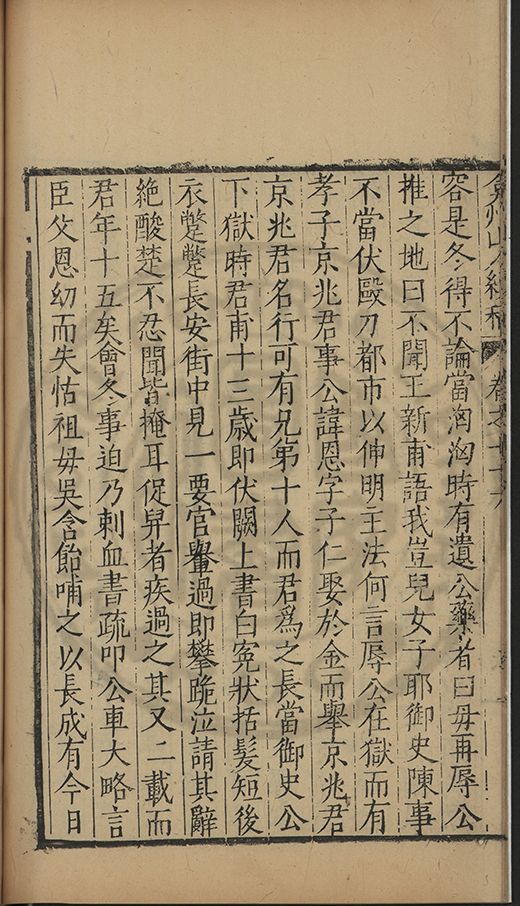 弇州山人續稿 卷之
容是冬得不論當洶洶時有遺公藥者曰毋再辱公
推之地曰不聞王新甫語我豈兒女子耶御史陳事
不當伏毆刀都市以伸明主法何言辱公在獄而有
孝子京兆君事公諱恩字子仁娶於金而舉京兆君
京兆君名行可有兄弟十人而君爲之長當御史公
下獄時君甫十三歲即伏闕上書白冤狀括髮短後
衣蹩蹩長安街中見一要官轝過即攀跪泣請其辭
絶酸楚不忍聞皆掩耳促舁者疾過之其又二載而
君年十五矣會冬事迫乃刺血書疏叩公車大略言
臣父恩幼而失怙祖毋吳含飴哺之以長成有今日